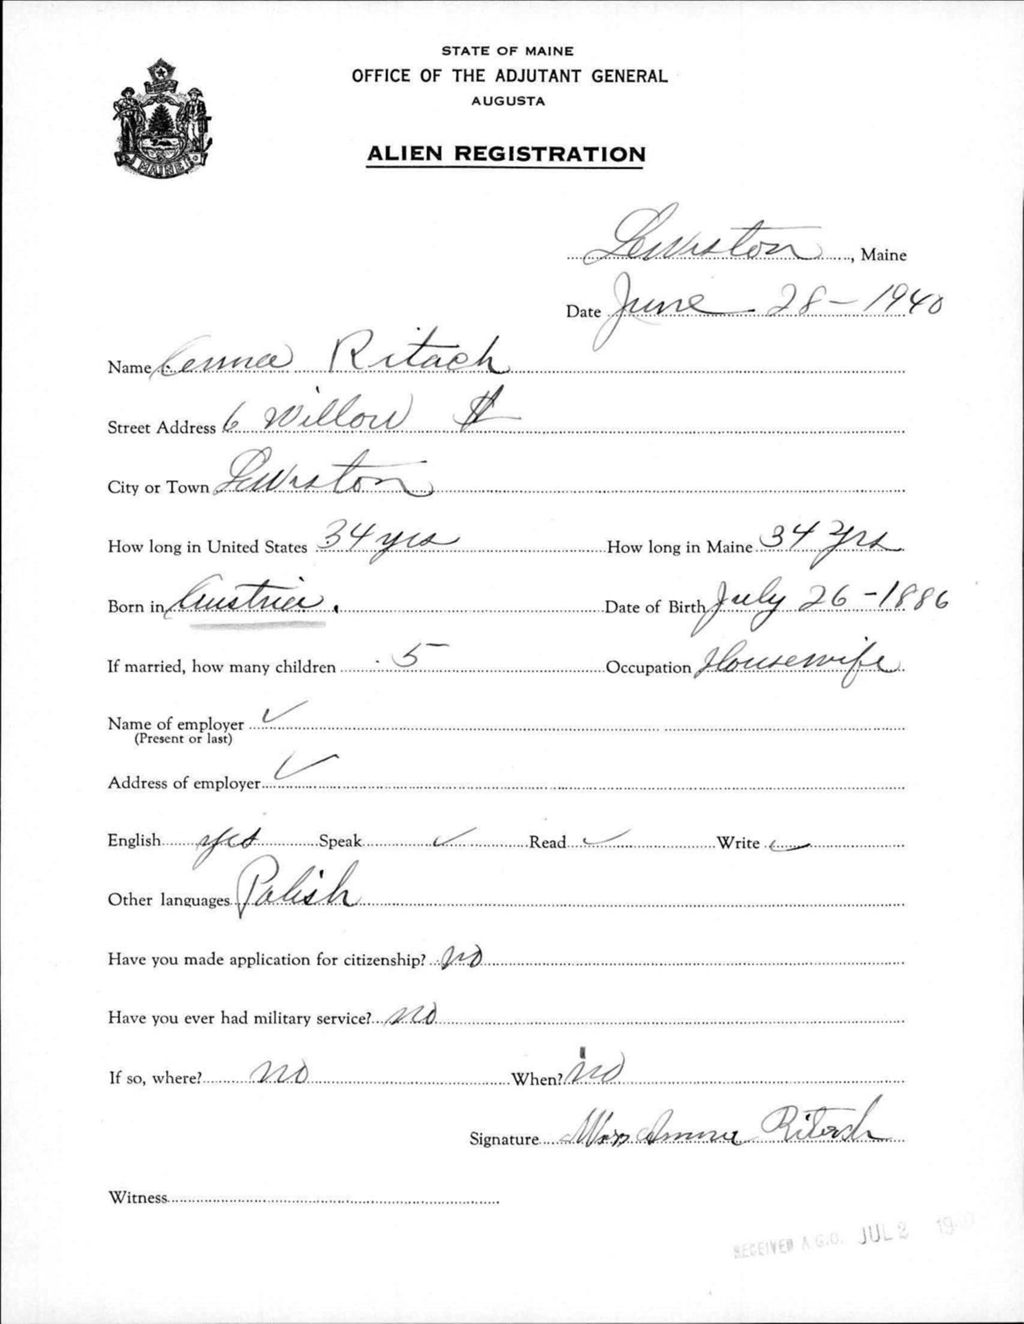 STATE OF MAINE
OFFICE OF THE ADJUTANT GENERAL
AUGUSTA
ALIEN REGISTRATION
MAINE
Lewiston, Maine
Date June 28 - 1940
Name Anna Ritach
Street Address 6 Willow St
City or Town Lewiston
How long in United States 34 yrs How long in Maine 34 Yrs
Born in Austria. Date of Birth July 26 - 1886
If married, how many children 5 Occupation Housewife
Name of employer ✓
(Present or last)
Address of employer ✓
English yes Speak ✓ Read ✓ Write ✓
Other languages Polish
Have you made application for citizenship? no
Have you ever had military service? no
If so, where? no When? no
Signature Mrs Anna Ritach
Witness
RECEIVED A.G.O. JUL 2